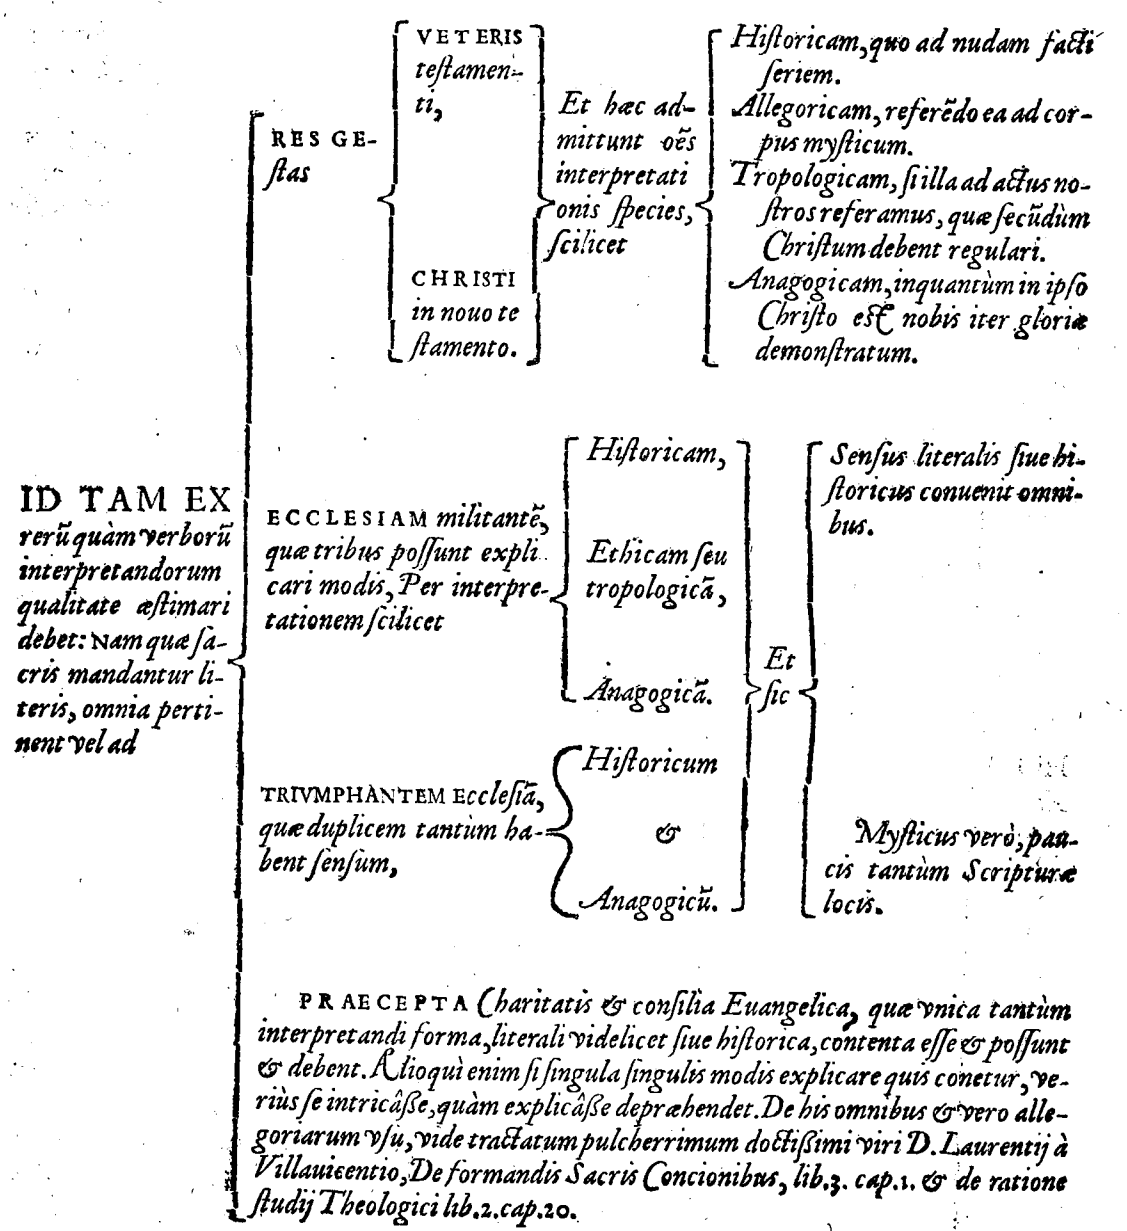 ID TAM EX
rerũ quàm verborũ
interpretandorum
qualitate æstimari
debet: Nam quæ sa-
cris mandantur li-
teris, omnia perti-
nent vel ad
RES GE-
stas
VETERIS
testamen-
ti,
CHRISTI
in nouo te
stamento.
Et hæc ad-
mittunt oẽs
interpretati
onis species,
scilicet
Historicam, quo ad nudam facti
seriem.
Allegoricam, referẽdo ea ad cor-
pus mysticum.
Tropologicam, si illa ad actus no-
stros referamus, quæ secũdùm
Christum debent regulari.
Anagogicam, inquantùm in ipso
Christo est nobis iter gloriæ
demonstratum.
ECCLESIAM militantẽ,
quæ tribus possunt expli
cari modis, Per interpre-
tationem scilicet
Historicam,
Ethicam seu
tropologicã,
Anagogicã.
TRIVMPHANTEM Ecclesiã,
quæ duplicem tantùm ha-
bent sensum,
Historicum
&
Anagogicũ.
Et
sic
Sensus literalis siue hi-
storicus conuenit omni-
bus.
Mysticus verò, pau-
cis tantùm Scripturæ
locis.
PRAECEPTA Charitatis & consilia Euangelica, quæ vnica tantùm
interpretandi forma, literali videlicet siue historica, contenta esse & possunt
& debent. Alioquì enim si singula singulis modis explicare quis conetur, ve-
riùs se intricâsse, quàm explicâsse depræhendet. De his omnibus & vero alle-
goriarum vsu, vide tractatum pulcherrimum doctissimi viri D. Laurentij à
Villauicentio, De formandis Sacris Concionibus, lib.3. cap.1. & de ratione
studij Theologici lib.2.cap.20.